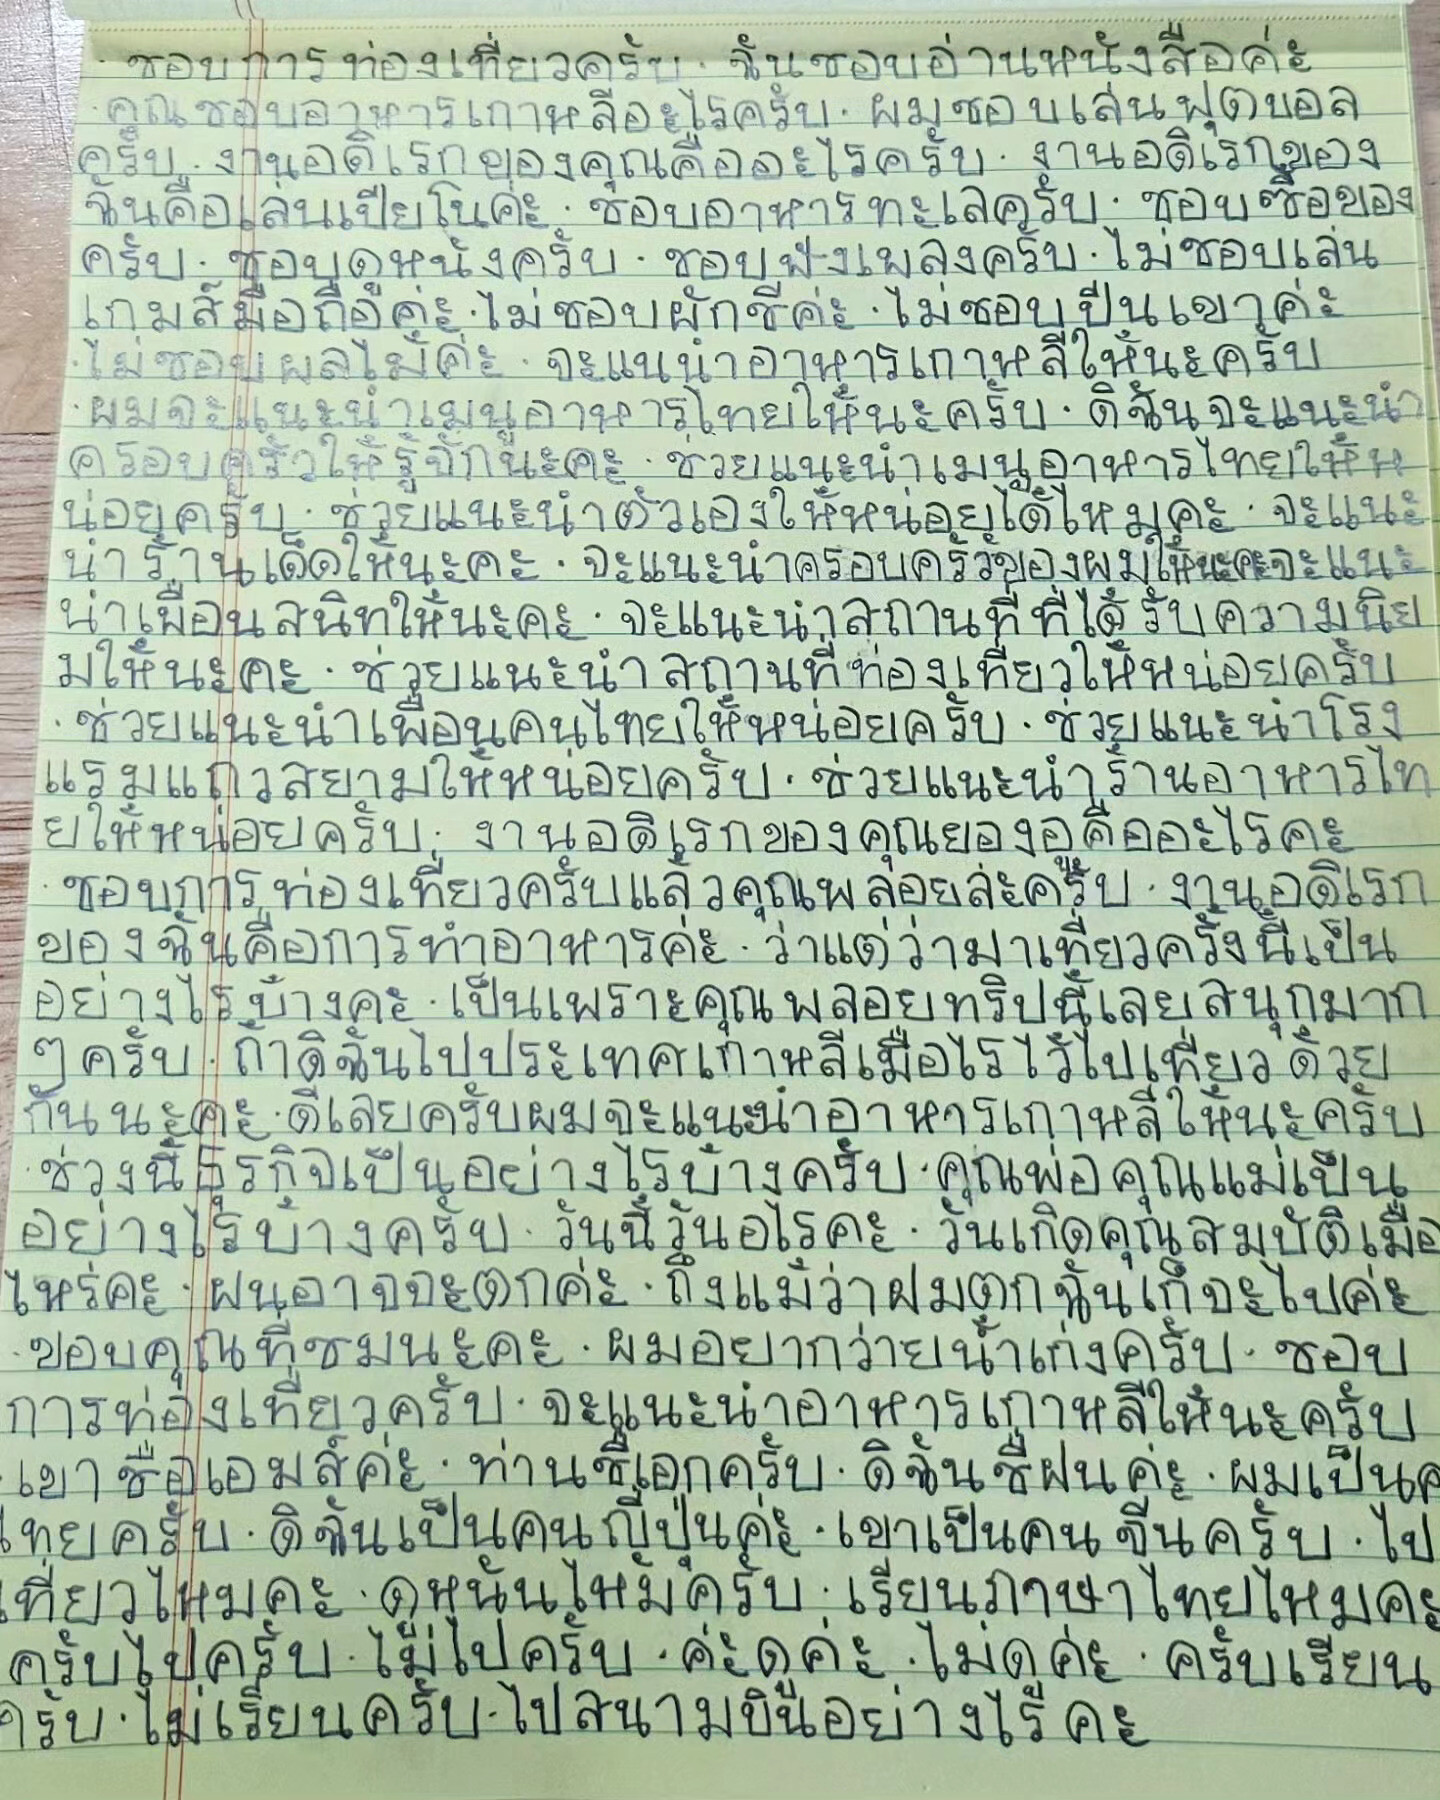 · ชอบการท่องเที่ยวครับ · ฉันชอบอ่านหนังสือค่ะ
· คุณชอบอาหารเกาหลีอะไรครับ · ผมชอบเล่นฟุตบอล
ครับ · งานอดิเรกของคุณคืออะไรครับ · งานอดิเรกของ
ฉันคือเล่นเปียโนค่ะ · ชอบอาหารทะเลครับ · ชอบซื้อของ
ครับ · ชอบดูหนังครับ · ชอบฟังเพลงครับ · ไม่ชอบเล่น
เกมส์มือถือค่ะ · ไม่ชอบผักชีค่ะ · ไม่ชอบปีนเขาค่ะ
· ไม่ชอบผลไม้ค่ะ · จะแนนำอาหารเกาหลีให้นะครับ
· ผมจะแนะนำเมนูอาหารไทยให้นะครับ · ดิฉันจะแนะนำ
ครอบครัวให้รู้จักนะคะ · ช่วยแนะนำเมนูอาหารไทยให้ห
น่อยครับ · ช่วยแนะนำตัวเองให้หน่อยได้ไหมคะ · จะแนะ
นำร้านเด็ดให้นะคะ · จะแนะนำครอบครัวของผมให้นะคะจะแนะ
นำเพื่อนสนิทให้นะคะ · จะแนะนำสถานที่ที่ได้รับความนิย
มให้นะคะ · ช่วยแนะนำสถานที่ท่องเที่ยวให้หน่อยครับ
· ช่วยแนะนำเพื่อนคนไทยให้หน่อยครับ · ช่วยแนะนำโรง
แรมแถวสยามให้หน่อยครับ · ช่วยแนะนำร้านอาหารไท
ยให้หน่อยครับ · งานอดิเรกของคุณยองอคืออะไรคะ
· ชอบการท่องเที่ยวครับแล้วคุณพลอยล่ะครับ · งานอดิเรก
ของฉันคือการทำอาหารค่ะ · ว่าแต่ว่ามาเที่ยวครั้งนี้เป็น
อย่างไรบ้างคะ · เป็นเพราะคุณพลอยทริปนี้เลยสนุกมาก
ๆ ครับ · ถ้าดิฉันไปประเทศเกาหลีเมื่อไรไว้ไปเที่ยวด้วย
กันนะคะ · ดีเลยครับผมจะแนะนำอาหารเกาหลีให้นะครับ
· ช่วงนี้ธุรกิจเป็นอย่างไรบ้างครับ · คุณพ่อคุณแม่เป็น
อย่างไรบ้างครับ · วันนี้วันอไรคะ · วันเกิดคุณสมบัติเมื่อ
ไหร่คะ · ฝนอาจจะตกค่ะ · ถึงแม้ว่าฝมตกฉันเก็จะไปค่ะ
· ขอบคุณที่ชมนะคะ · ผมอยากว่ายน้ำเก่งครับ · ชอบ
การท่องเที่ยวครับ · จะแนะนำอาหารเกาหลีให้นะครับ
· เขาชื่อเอมส์ค่ะ · ท่านชื่เอกครับ · ดิฉันชื่ฝนค่ะ · ผมเป็นค
ไทยครับ · ดิฉันเป็นคนญี่ปุ่นค่ะ · เขาเป็นคนจีนครับ · ไป
เที่ยวไหมคะ · ดูหนันไหมครับ · เรียนภาษาไทยไหมคะ
ครับไปครับ · ไม่ไปครับ · ค่ะดูค่ะ · ไม่ดูค่ะ · ครับเรียน
ครับ · ไม่เรียนครับ · ไปสนามบินอย่างไรคะ